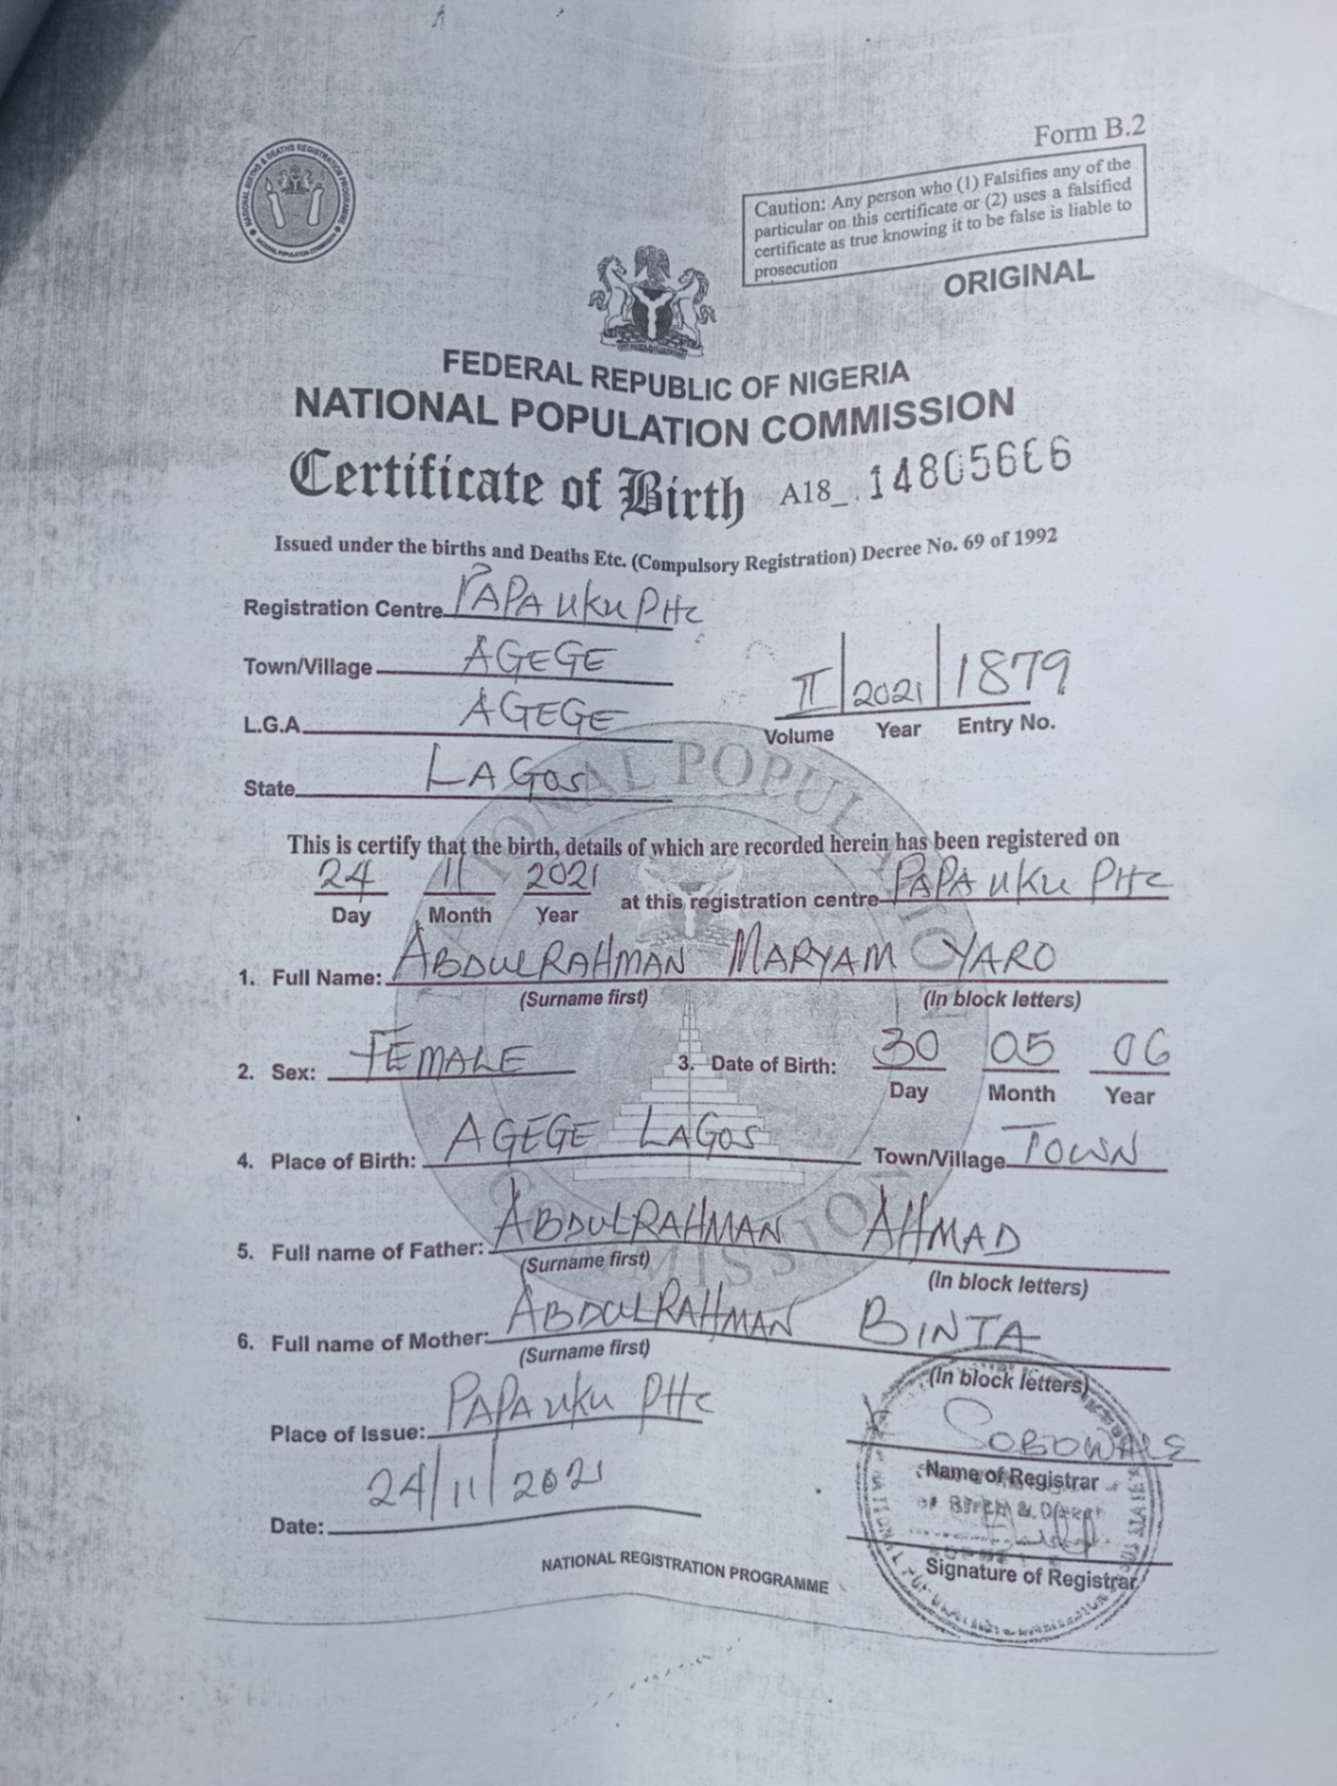 NATIONAL BIRTHS & DEATHS REGISTRATION PROGRAMME
NATIONAL POPULATION COMMISSION
Form B.2
Caution: Any person who (1) Falsifies any of the
particular on this certificate or (2) uses a falsified
certificate as true knowing it to be false is liable to
prosecution
ORIGINAL
FEDERAL REPUBLIC OF NIGERIA
NATIONAL POPULATION COMMISSION
Certificate of Birth A18_.
Issued under the births and Deaths Etc. (Compulsory Registration) Decree No. 69 of 1992
Registration Centre PAPA UKU PHC
Town/Village AGEGE
L.G.A AGEGE
II 2021 1879
Volume Year Entry No.
State LAGOS
NATIONAL POPULATION COMMISSION
This is certify that the birth, details of which are recorded herein has been registered on
24 11 2021 at this registration centre PAPA UKU PHC
Day Month Year
1. Full Name: ABDULRAHMAN MARYAM OYARO
(Surname first) (In block letters)
2. Sex: FEMALE 3. Date of Birth: 30 05 06
Day Month Year
4. Place of Birth: AGEGE LAGOS Town/Village TOWN
5. Full name of Father: ABDULRAHMAN AHMAD
(Surname first) (In block letters)
6. Full name of Mother: ABDULRAHMAN BINTA
(Surname first) (In block letters)
Place of Issue: PAPA UKU PHC
SOBOWALE
Name of Registrar
Date: 24/11/2021
Signature of Registrar
NATIONAL REGISTRATION PROGRAMME